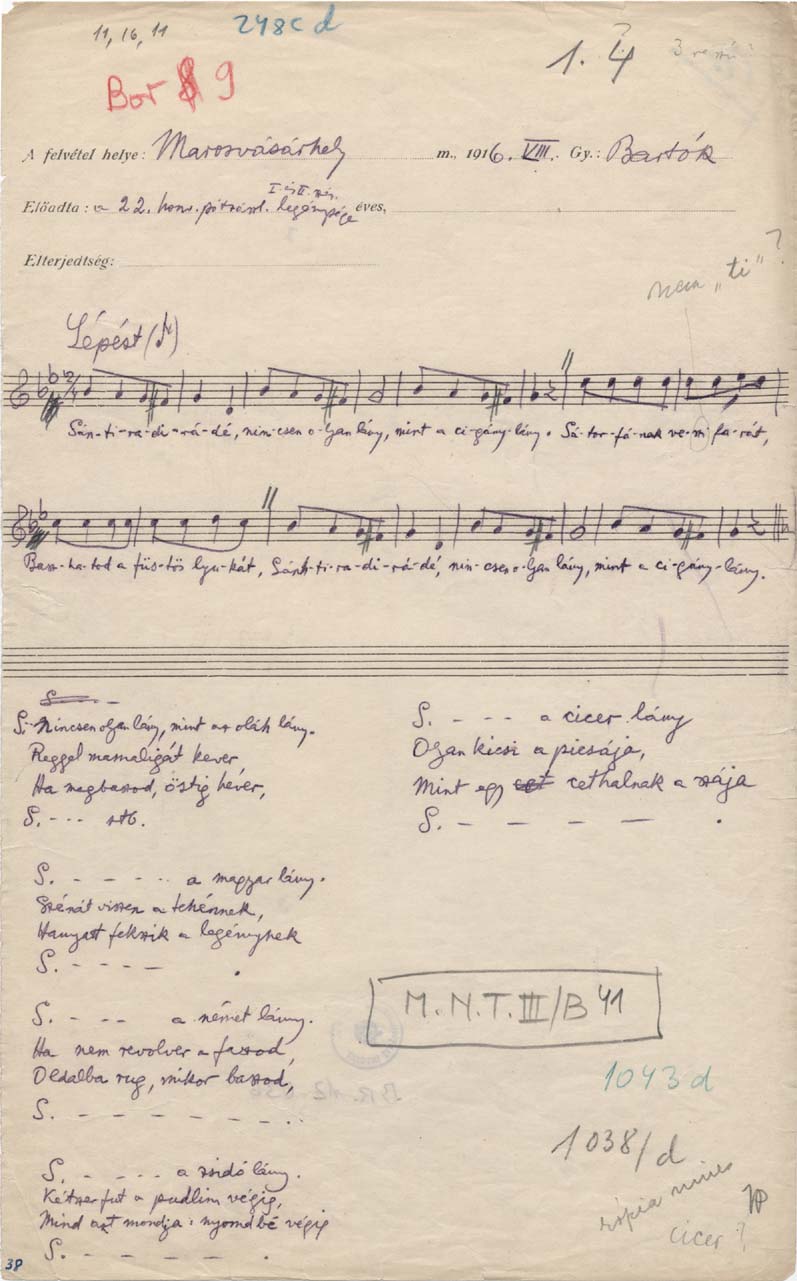 11, 16, 11
248c d
1. 4 ?
Bor 9
A felvétel helye: Marosvásárhely m., 1916. VIII. Gy.: Bartók
I. és II.
Előadta: a 22. honv. pótzászl. legénysége éves,
Elterjedtség:
nem "ti" ?
Lépést
2/4
Sán-ti-ra-di-rá-dé, nin-csen o-lyan lány, mint a ci-gány-lány. Sá-tor-fá-nak ve-ti fa-rát,
Basz-ha-tod a füs-tös lyu-kát, Sán-ti-ra-di-rá-dé, nin-csen o-lyan lány, mint a ci-gány-lány.
S. Nincsen olyan lány, mint az oláh lány.
Reggel mamaligát kever,
Ha megbaszod, östig héver,
S. - - - stb.
S. - - - - - a magyar lány.
Szénát viszen a tehénnek,
Hanyatt fekszik a legénynek
S. - - - - .
S. - - - a német lány.
Ha nem revolver a faszod,
Oldalba rug, mikor baszod,
S. - - - - - - - . .
S. - - - - - a zsidó lány.
Kétszer fut a padlim végig,
Mind azt mondja: nyomd bé végig
S. - - - - - .
S. - - - - a cicer lány
Olyan kicsi a picsája,
Mint egy cethalnak a szája
S. - - - - .
M.N.T. III/B 41
1043 d
1038/d
kópia nincs
cicer?
38